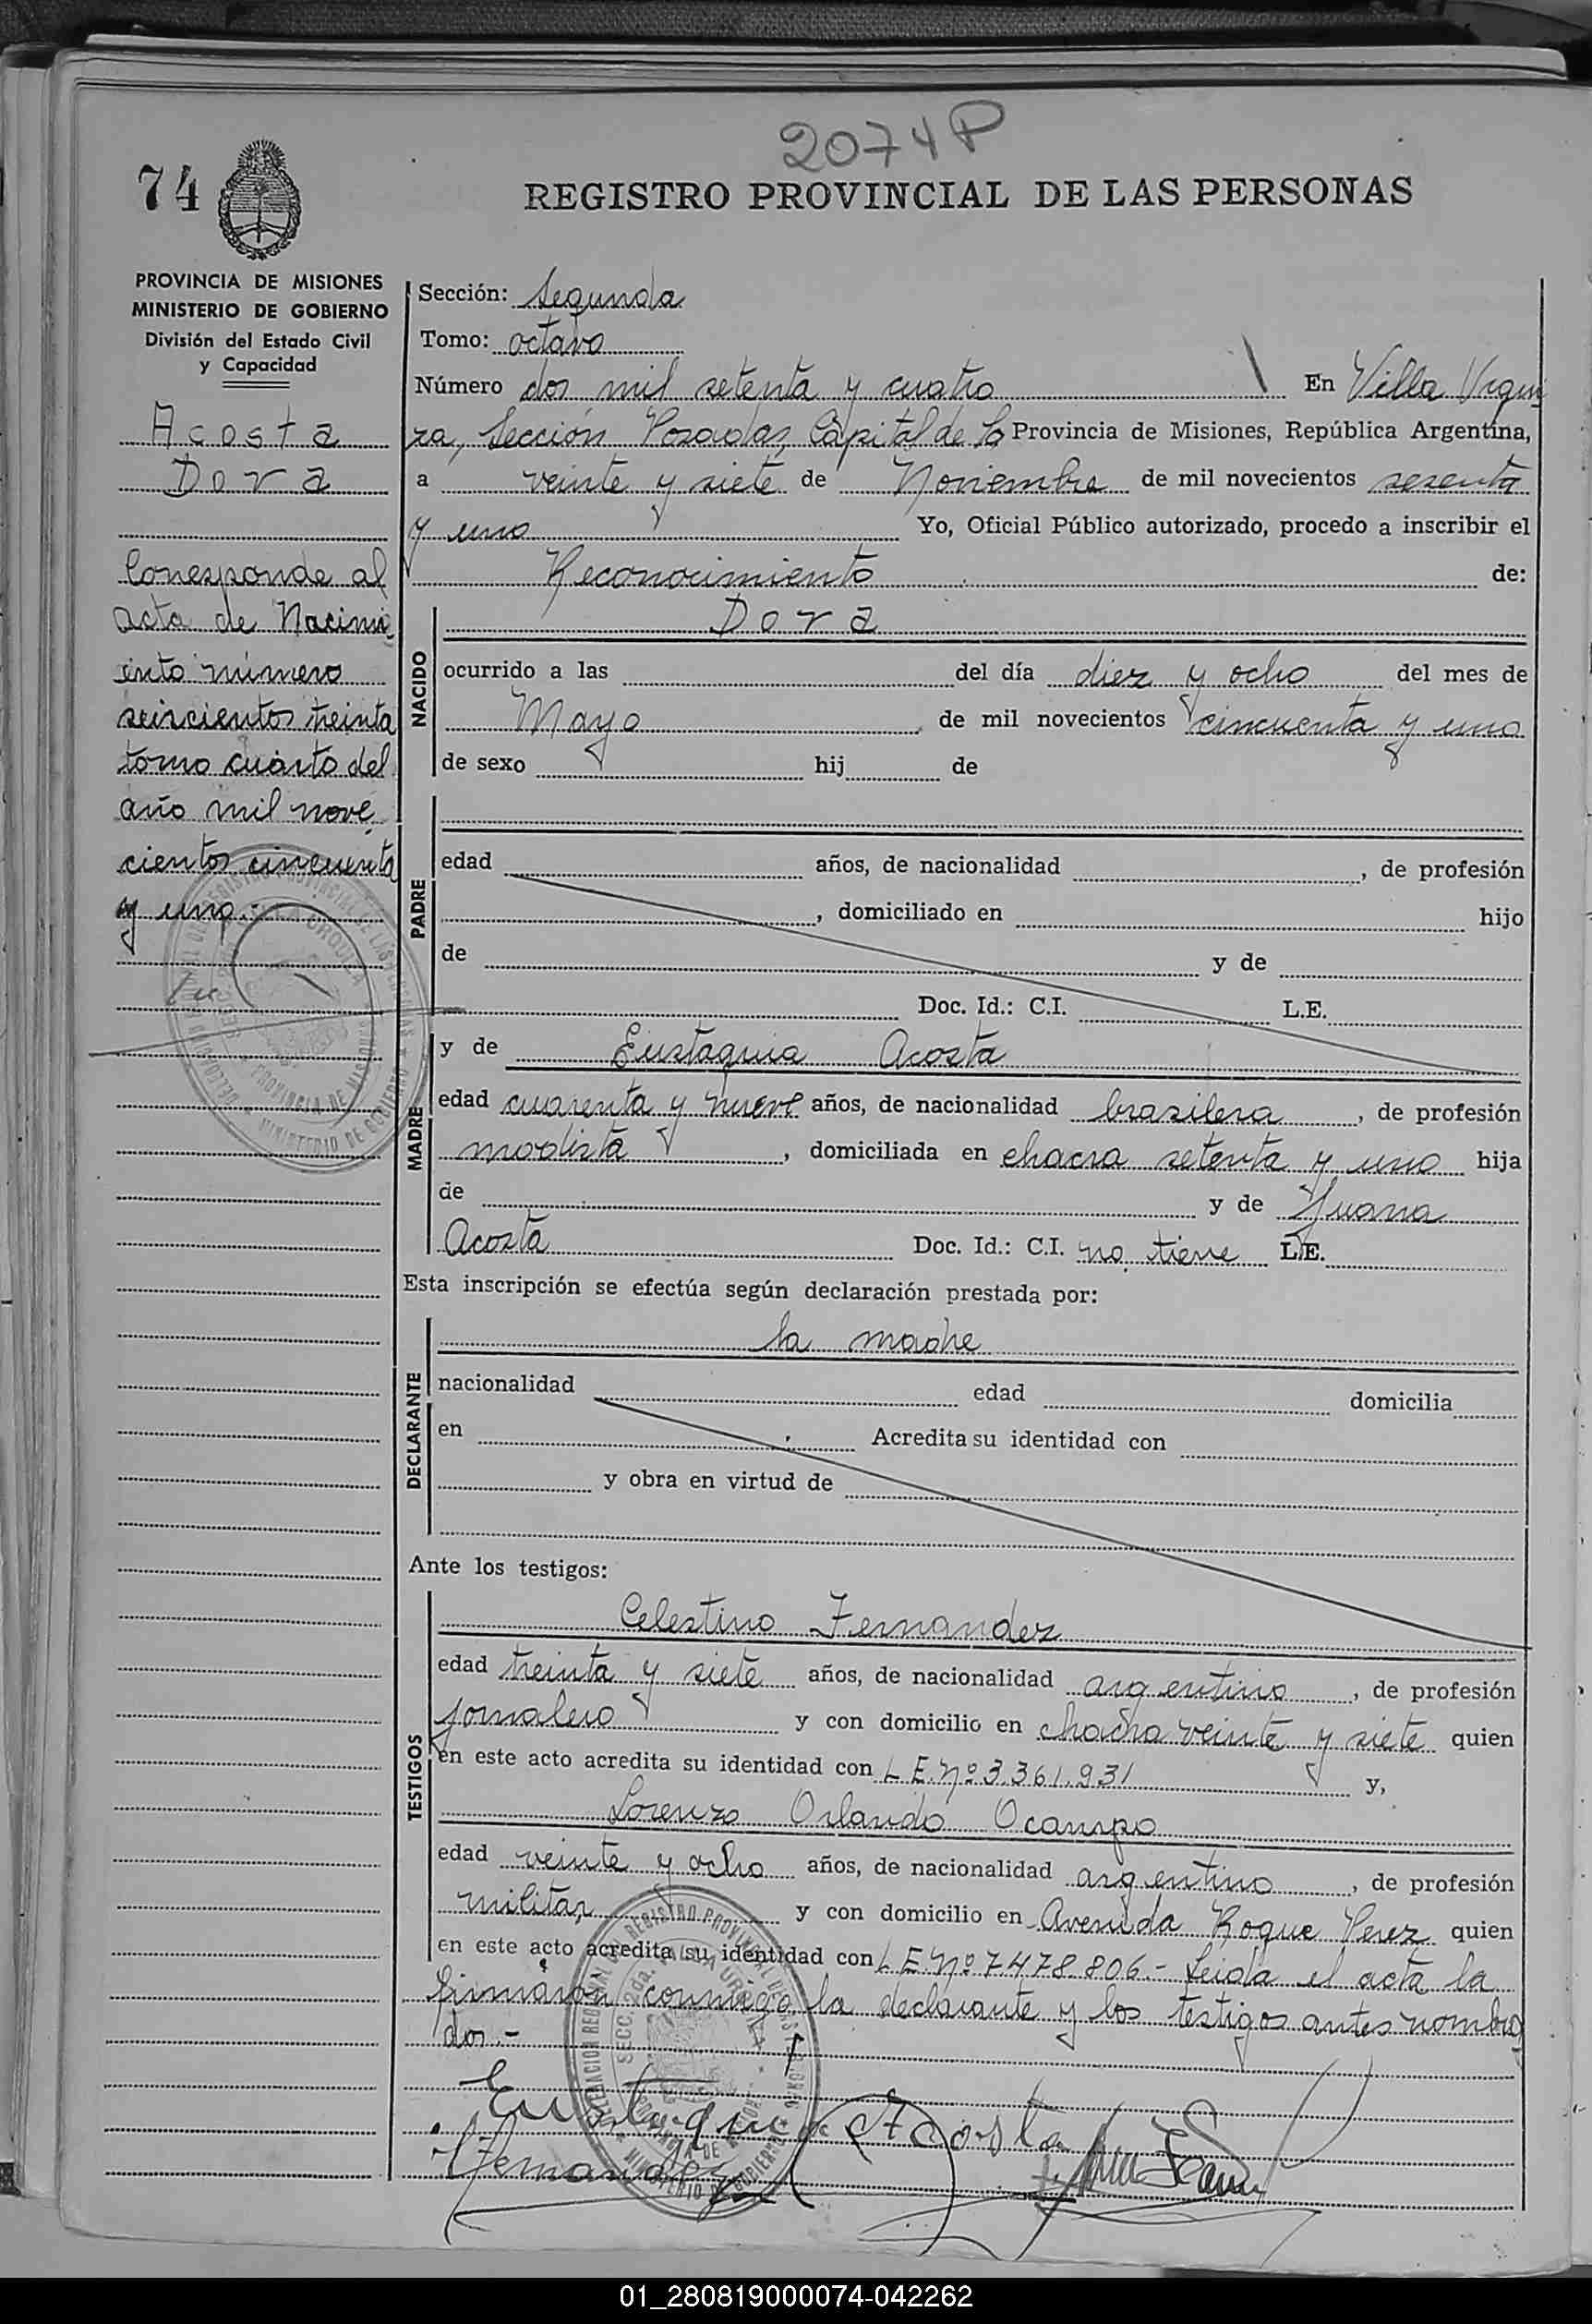 2074 P
74
REGISTRO PROVINCIAL DE LAS PERSONAS
PROVINCIA DE MISIONES
MINISTERIO DE GOBIERNO
División del Estado Civil
y Capacidad
Acosta
Dora
Corresponde al
acta de Nacimi
ento número
seiscientos treinta
tomo cuarto del
año mil nove
cientos cincuenta
y uno.-
Sección: Segunda
Tomo: octavo
Número dos mil setenta y cuatro En Villa Urqui
za, Sección Posadas, Capital de la Provincia de Misiones, República Argentina,
a veinte y siete de Noviembre de mil novecientos sesenta
y uno Yo, Oficial Público autorizado, procedo a inscribir el
Reconocimiento de:
NACIDO
Dora
ocurrido a las del día diez y ocho del mes de
Mayo de mil novecientos cincuenta y uno
de sexo hij de
PADRE
edad años, de nacionalidad , de profesión
, domiciliado en hijo
de y de
Doc. Id.: C.I. L.E.
MADRE
y de Eustaquia Acosta
edad cuarenta y nueve años, de nacionalidad brasilera , de profesión
modista , domiciliada en chacra setenta y uno hija
de y de Juana
Acosta Doc. Id.: C.I. no tiene L.E.
Esta inscripción se efectúa según declaración prestada por:
DECLARANTE
la madre
nacionalidad edad domicilia
en Acredita su identidad con
y obra en virtud de
Ante los testigos:
TESTIGOS
Celestino Fernandez
edad treinta y siete años, de nacionalidad argentino , de profesión
jornalero y con domicilio en chacra veinte y siete quien
en este acto acredita su identidad con L.E. Nº 3.361.931 y,
Lorenzo Orlando Ocampo
edad veinte y ocho años, de nacionalidad argentino , de profesión
militar y con domicilio en Avenida Roque Perez quien
en este acto acredita su identidad con L.E. Nº 7.478.806.- Leida el acta la
firmaron conmigo la declarante y los testigos antes nombra
dos.-
Eustaquia Acosta
Fernandez
01_280819000074-042262